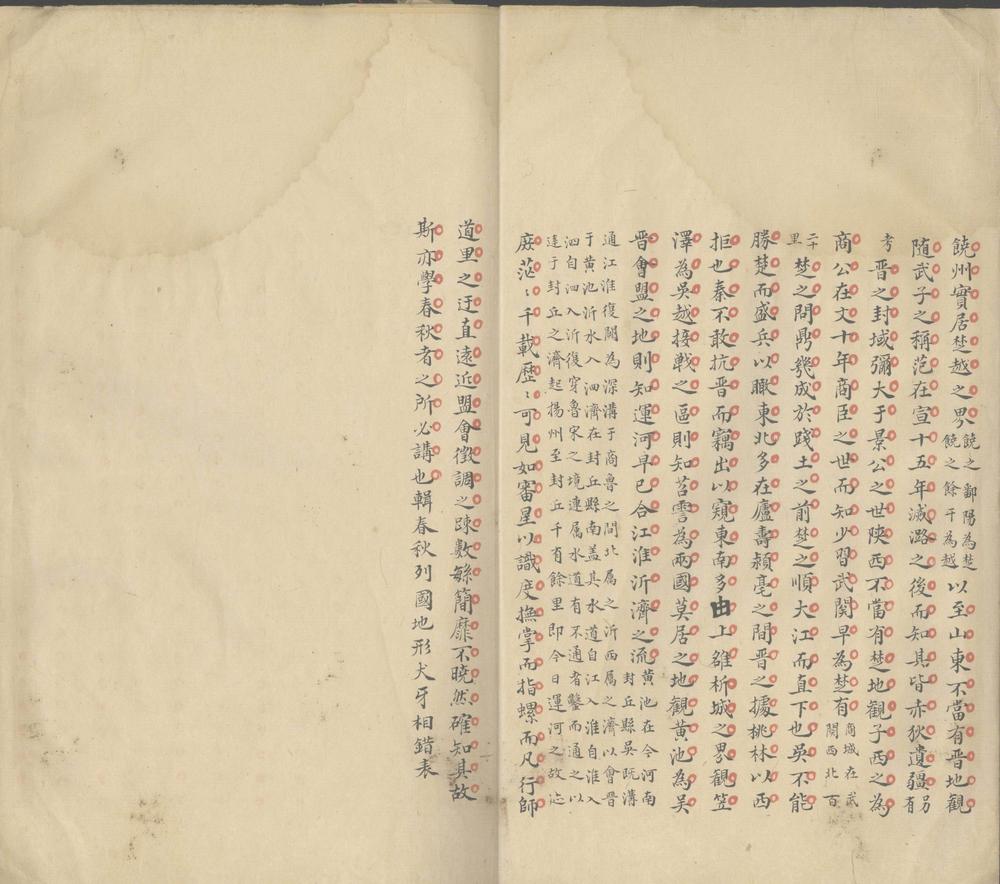 饒州實居楚越之界饒之鄱陽為楚饒之餘干為越以至山東不當有晋地觀
隨武子之稱范在宣十五年滅潞之後而知其皆赤狄遺疆另有
考晋之封域彌大于景公之世陝西不當有楚地觀子西之為
商公在文十年商臣之世而知少習武関早為楚有商城在武関西北百
二十里楚之問鼎幾成於踐土之前楚之順大江而直下也吳不能
勝楚而盛兵以瞰東北多在廬壽潁亳之間晋之據桃林以西
拒也秦不敢抗晋而竊出以窺東南多由上雒析城之界觀笠
澤為吳越接戰之區則知苕霅為兩國莫居之地觀黃池為吳
晋會盟之地則知運河早已合江淮沂濟之流黃池在今河南封丘縣吳既溝
通江淮復闕為深溝于商魯之間北属之沂西属之濟以會晋
于黃池沂水入泗濟在封丘縣南盖其水道自江入淮自淮入
泗自泗入沂復穿魯宋之境連属水道有不通者鑿而通之以
達于封丘之濟起揚州至封丘千有餘里即今日運河之故迹
庶茫〻千載歷〻可見如審星以識度撫掌而指螺而凡行師
道里之迂直遠近盟會徵調之踈數緐簡靡不曉然確知其故
斯亦學春秋者之所必講也輯春秋列國地形犬牙相錯表